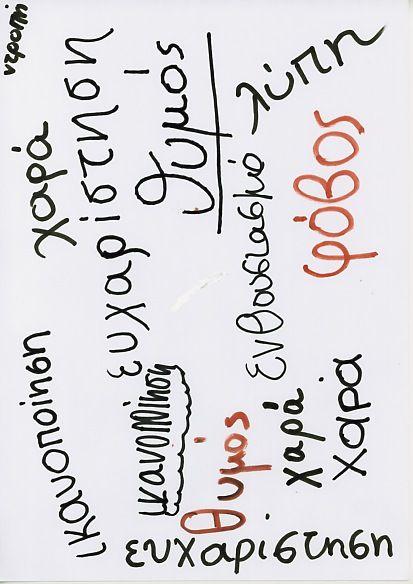 ντροπή
χαρά
ευχαρίστηση
θυμός
λύπη
ενθουσιασμό
φόβος
ικανοποίηση
ικανοποίηση
θυμός
χαρά
χαρά
ευχαριστηση